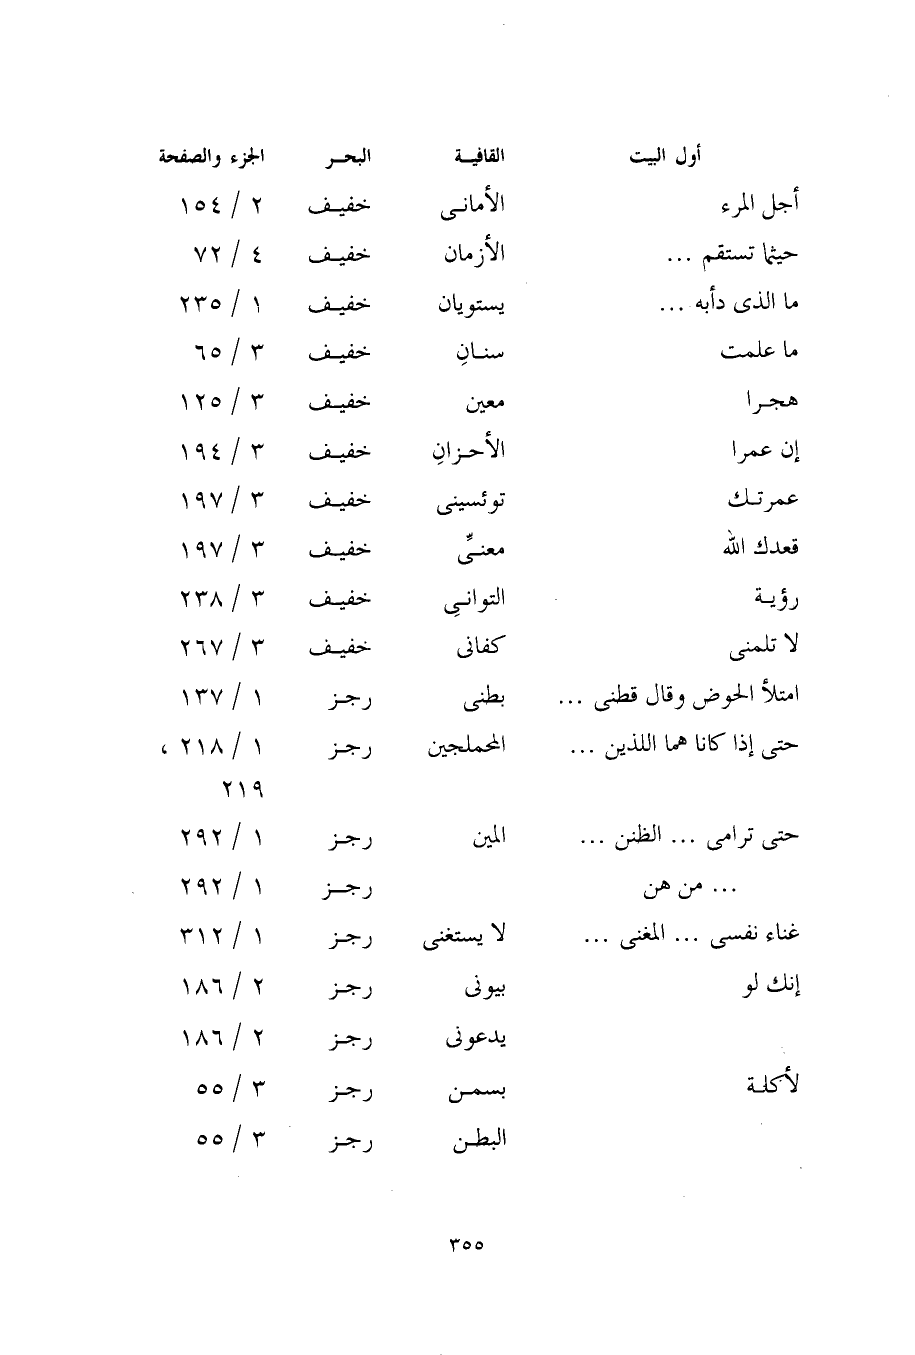 أول البيت القافيـة البحـر الجزء والصفحة
أجل المرء الأمانـى خفيـف ٢ / ١٥٤
حيثما تستقم ... الأزمان خفيـف ٤ / ٧٢
ما الذى دأبه ... يستويان خفيـف ١ / ٢٣٥
ما علمت سنـانِ خفيـف ٣ / ٦٥
هجـرا معين خفيـف ٣ / ١٢٥
إن عمرا الأحـزانِ خفيـف ٣ / ١٩٤
عمرتـك توئسينى خفيـف ٣ / ١٩٧
قعدك الله معنـىِّ خفيـف ٣ / ١٩٧
رؤيـة التوانـىِ خفيـف ٣ / ٢٣٨
لا تلمنى كفانى خفيـف ٣ / ٢٦٧
امتلأ الحوض وقال قطنى ... بطنى رجـز ١ / ١٣٧
حتى إذا كانا هما اللذين ... المحملجين رجـز ١ / ٢١٨ ،
٢١٩
حتى ترامى ... الظنن ... المين رجـز ١ / ٢٩٢
... من هن رجـز ١ / ٢٩٢
غناء نفسى ... المغنى ... لا يستغنى رجـز ١ / ٣١٢
إنك لو بيونى رجـز ٢ / ١٨٦
يدعونى رجـز ٢ / ١٨٦
لأكلـة بسمـن رجـز ٣ / ٥٥
البطـن رجـز ٣ / ٥٥
٣٥٥